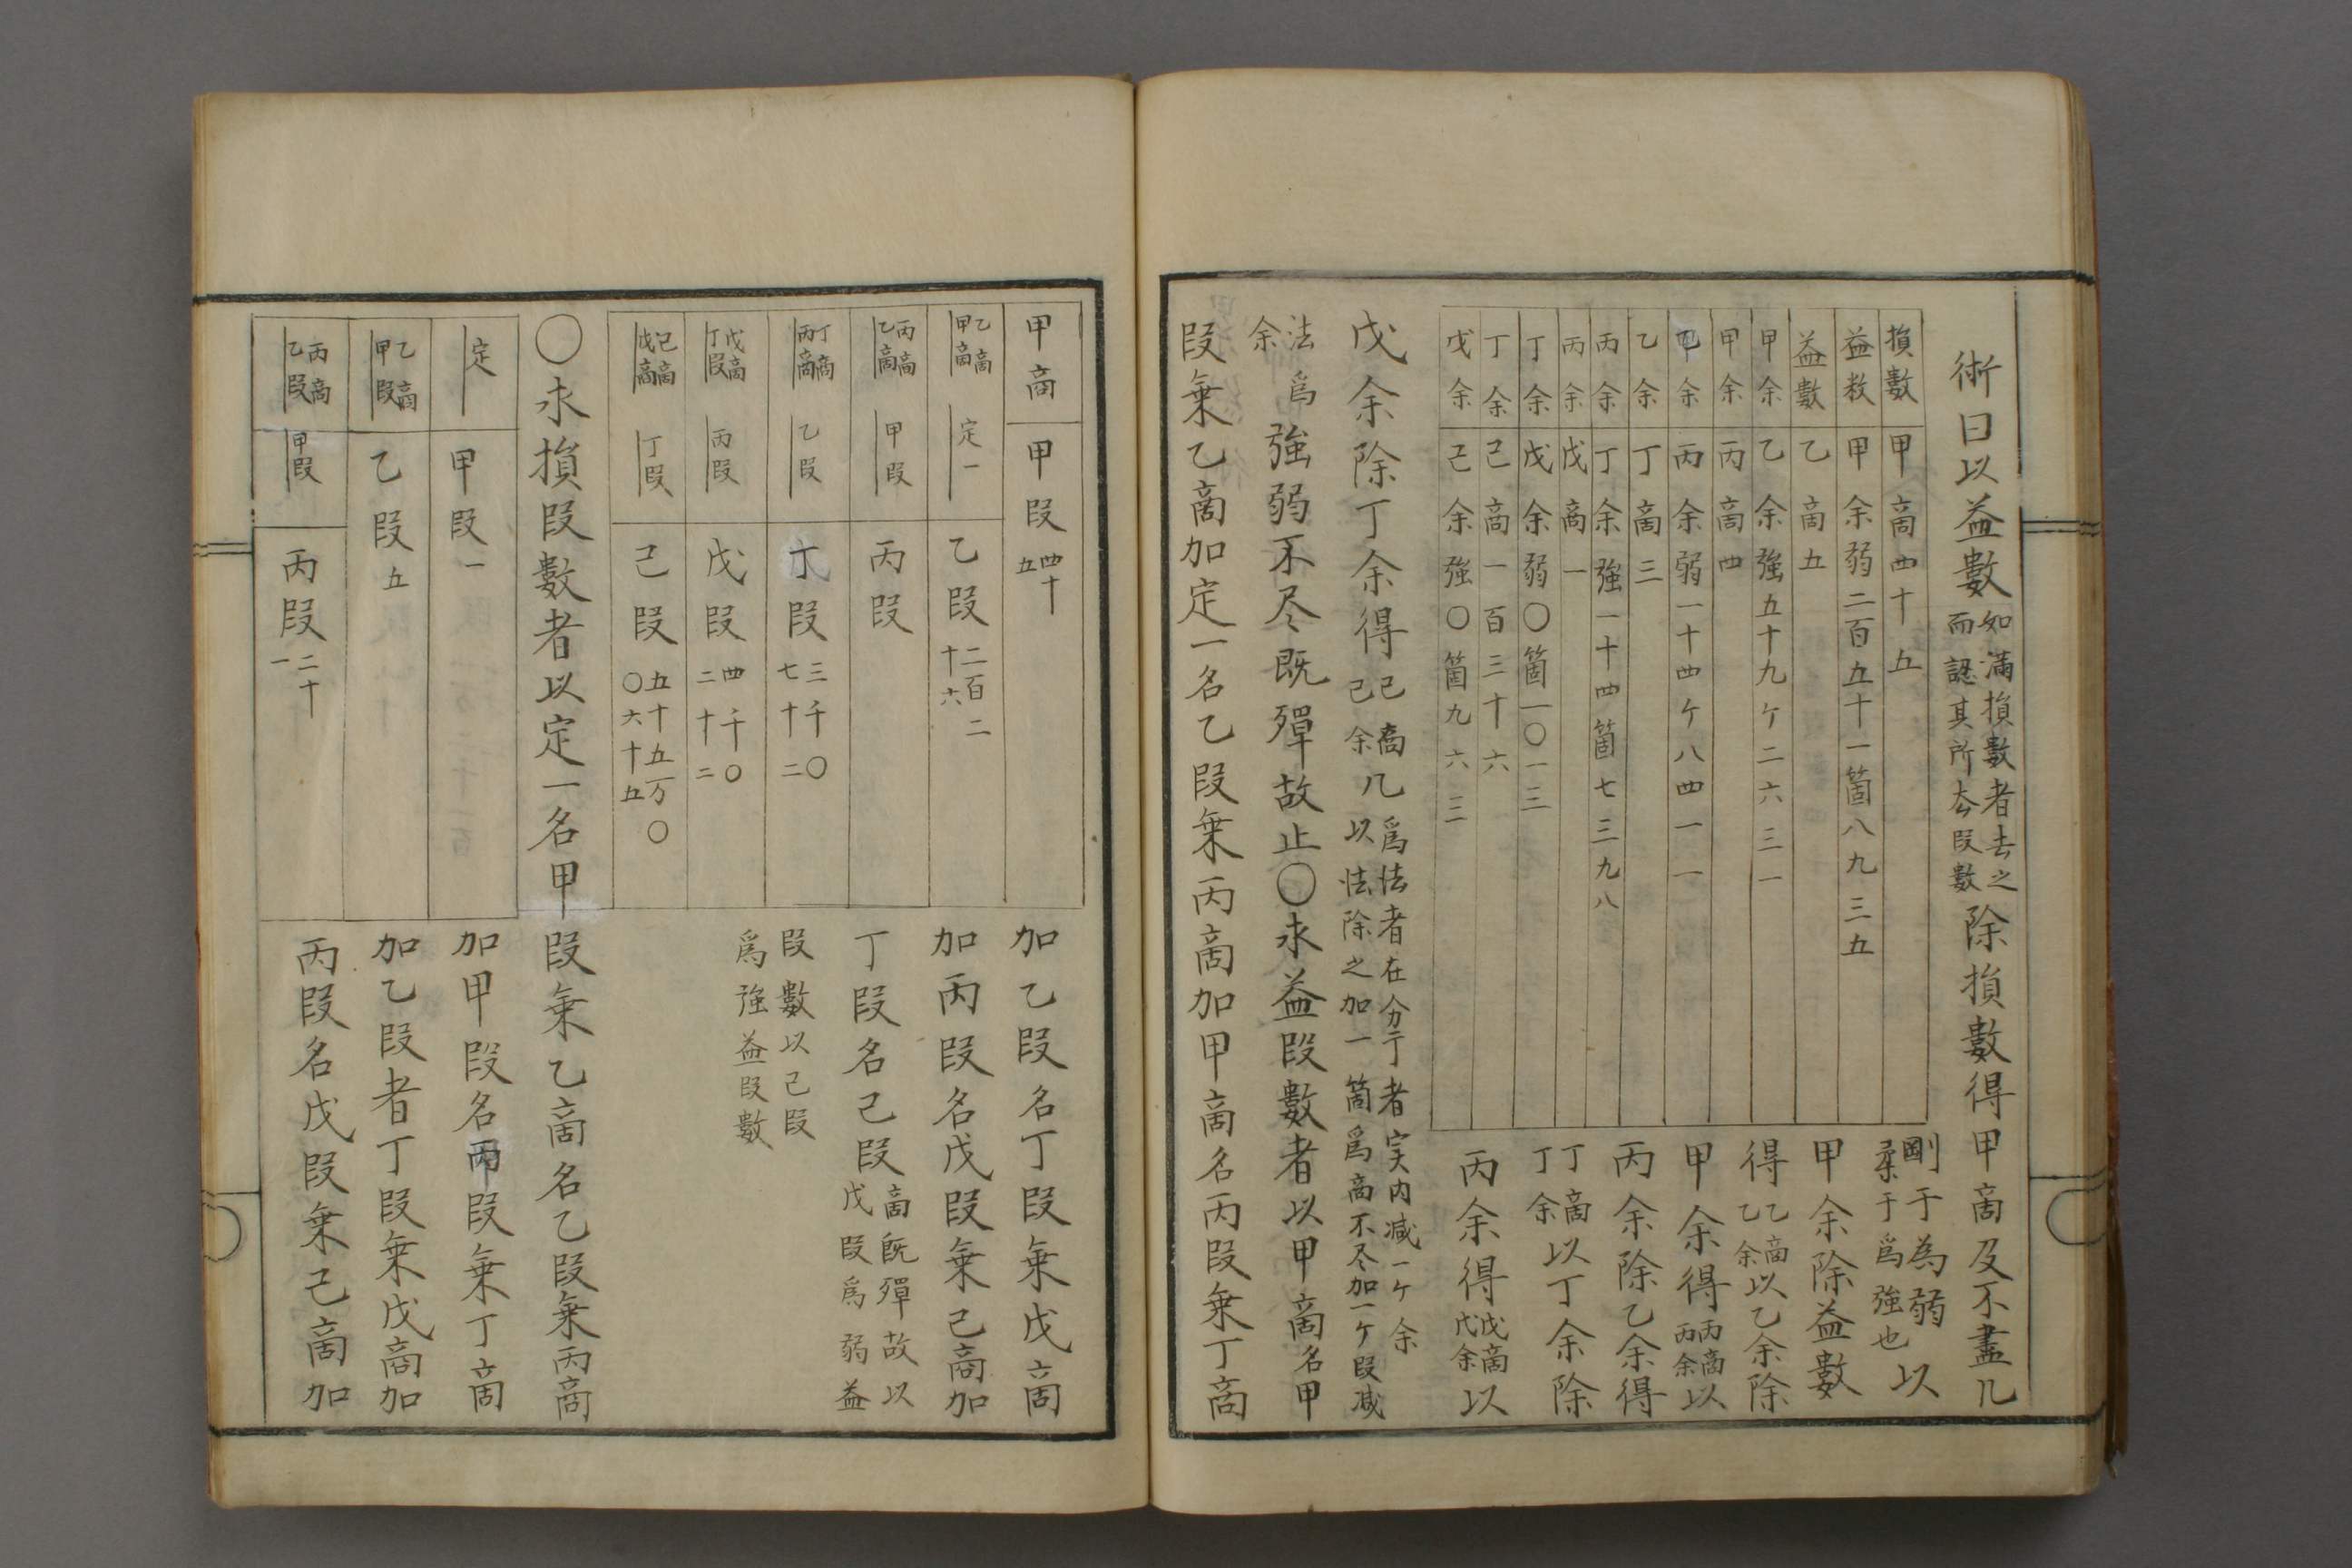 術曰以益數如滿損數者去之而認其所去段數除損數得甲啇及不盡凢
損數 甲啇四十五
益数 甲余弱二百五十一箇八九三五
益數 乙啇五
甲余 乙余強五十九ケ二六三一
甲余 丙啇四
乙余 丙余弱一十四ケ八四一一
乙余 丁啇三
丙余 丁余強一十四箇七三九八
丙余 戊啇一
丁余 戊余弱〇箇一〇一三
丁余 己啇一百三十六
戊余 己余強〇箇九六三
剛于為弱柔于爲強也以
甲余除益數
得乙啇乙余以乙余除
甲余得丙啇丙余以
丙余除乙余得
丁啇丁余以丁余除
丙余得戊啇戊余以
戊余除丁余得己啇己余凢爲法者在分于者実内减一ケ余以法除之加一箇爲啇不尽加一ケ段减
法余爲強弱不尽既殫故止〇求益段數者以甲啇名甲
段乗乙啇加定一名乙段乗丙啇加甲啇名丙段乗丁啇
甲啇 甲段四十五
乙啇甲啇 定一 乙段二百二十六
丙啇乙啇 甲段 丙段
丁啇丙啇 乙段 丁段三千〇七十二
戊啇丁段 丙段 戊段四千〇二十二
己啇戊啇 丁段 己段五十五万〇〇六十五
加乙段名丁段乗戊啇
加丙段名戊段乗己啇加
丁段名己段啇既殫故以戊段爲弱益
段數以己段爲強益段數
〇求損段數者以定一名甲段乗乙啇名乙段乗丙啇
定 甲段一
乙啇甲段 乙段五
丙啇乙段 甲段 丙段二十一
加甲段名丙段乗丁啇
加乙段者丁段乗戊啇加
丙段名戊段乗己啇加